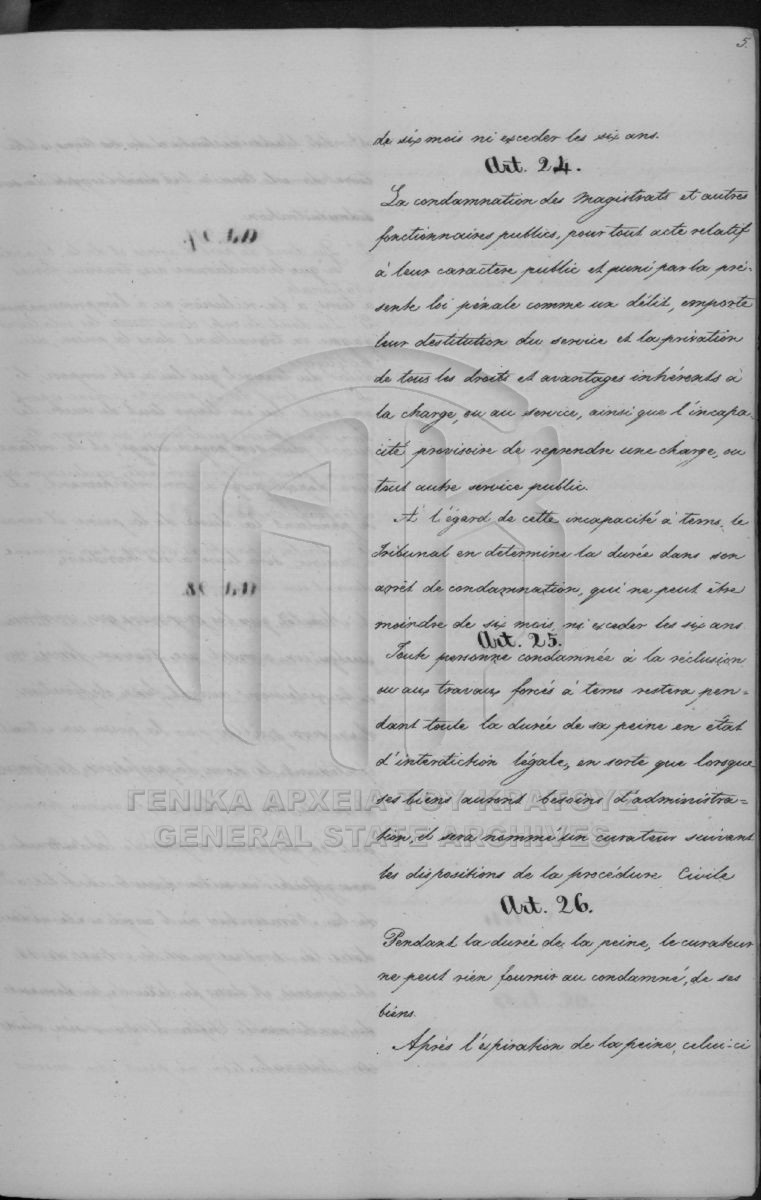 5.
de six mois ni exceder les six ans.
Art. 24.
La condamnation des Magistrats et autres
fonctionnaires publics, pour tout acte relatif
à leur caractere public et puni par la pré-
sente loi pénale comme un délit, emporte
leur destitution du service et la privation
de tous les droits et avantages inhérents à
la charge, ou au service, ainsi que l'incapa-
cité provisoire de reprendre une charge, ou
tout autre service public.
A l'égard de cette incapacité à tems, le
Tribunal en determine la durée dans son
arrêt de condamnation, qui ne peut être
moindre de six mois, ni exceder les six ans
Art. 25.
Toute personne condamnée à la réclusion
ou aux travaux forcés à tems restera pen-
dant toute la durée de sa peine en état
d'interdiction légale, en sorte que lorsque
ses biens aurons besoins d'administra-
tion, il sera nommé un curateur suivant
les dispositions de la procédure Civile
Art. 26.
Pendant la durée de la peine, le curateur
ne peut rien fournir au condamné, de ses
biens.
Après l'expiration de la peine, celui-ci
ΓΕΝΙΚΑ ΑΡΧΕΙΑ ΤΟΥ ΚΡΑΤΟΥΣ
GENERAL STATE ARCHIVES